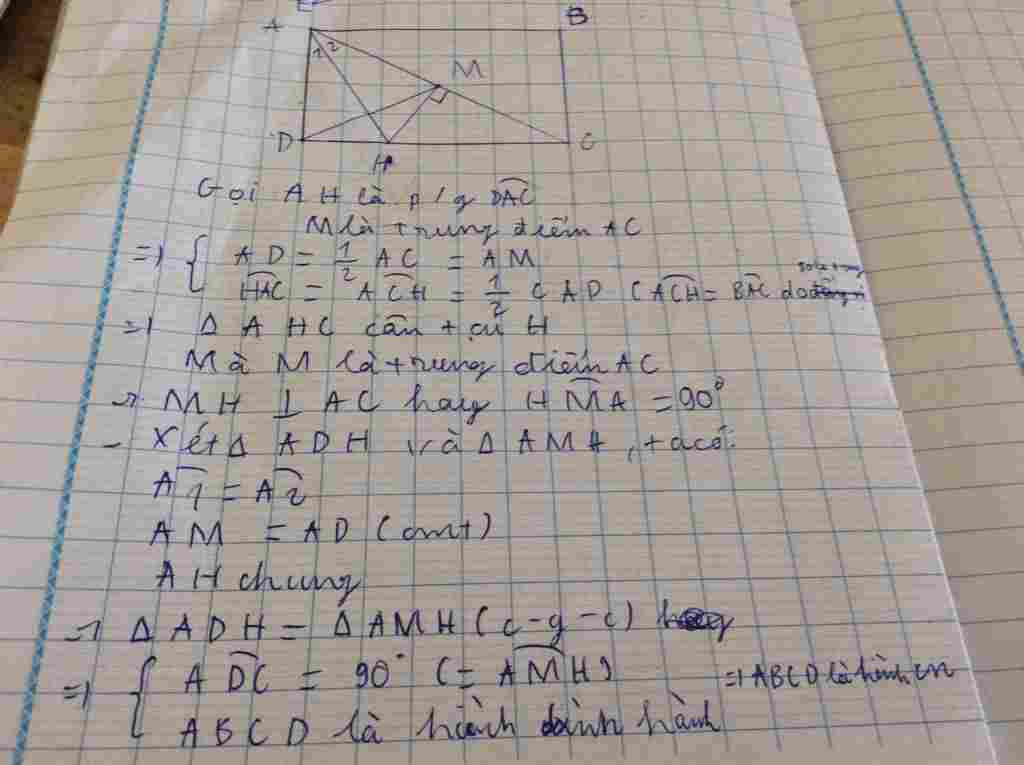 A B
1 2
M
D H C
Gọi AH là p/g DAC
M là trung điểm AC
=> { AD = 1/2 AC = AM
HAC = ACH = 1/2 CAD (ACH = BAC do
=> Δ AHC cân tại H
Mà M là trung điểm AC
=> MH ⊥ AC hay HMA = 90°
- Xét Δ ADH và Δ AMH, ta có:
A1 = A2
AM = AD (cmt)
AH chung
=> Δ ADH = Δ AMH (c-g-c)
=> { ADC = 90° (= AMH) => ABCD là hình cn
ABCD là hình bình hành